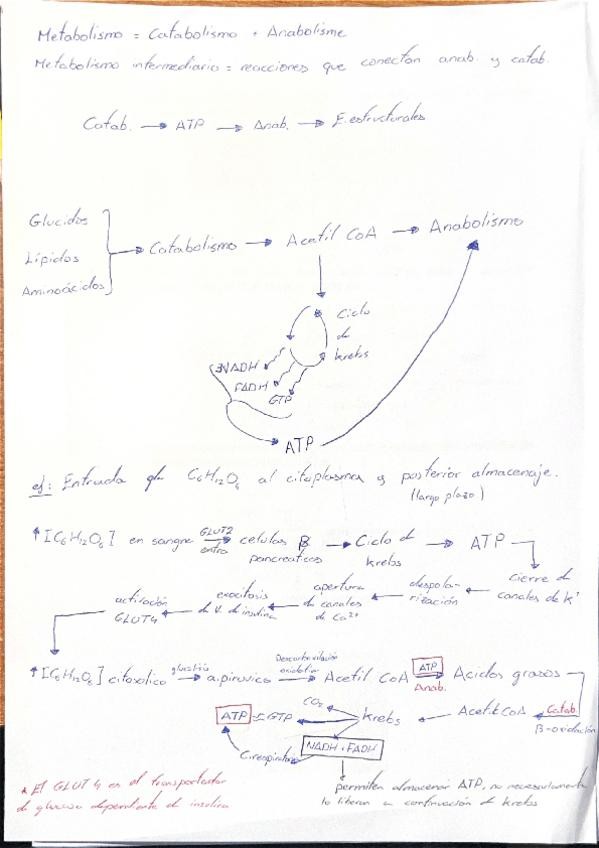 Metabolismo = Catabolismo + Anabolismo
Metabolismo intermediario = reacciones que conectan anab. y catab.
Catab. → ATP → Anab. → E. estructurales
Glucidos
Lípidos
Aminoácidos
→ Catabolismo → Acetil CoA → Anabolismo
Ciclo
de
krebs
3NADH
FADH
GTP
ATP
ej: Entrada de C6H12O6 al citoplasma y posterior almacenaje.
(largo plazo)
↑[C6H12O6] en sangre GLUT2 entra → celulas β pancreaticas → Ciclo de krebs → ATP
cierre de canales de K+
← despolarización ← apertura de canales de Ca2+ ← exocitosis de v. de insulina ← activación GLUT4
↑[C6H12O6] citosolico glucolisis → a. piruvico Descarboxilación oxidativa → Acetil CoA ATP Anab. → Acidos grasos
Catab. β-oxidación
Acetil CoA
krebs
CO2
ATP ⇆ GTP
NADH + FADH
C. respiratoria
permiten almacenar ATP, no necesariamente
lo liberan a continuación de krebs
* El GLUT4 es el transportador
de glucosa dependiente de insulina